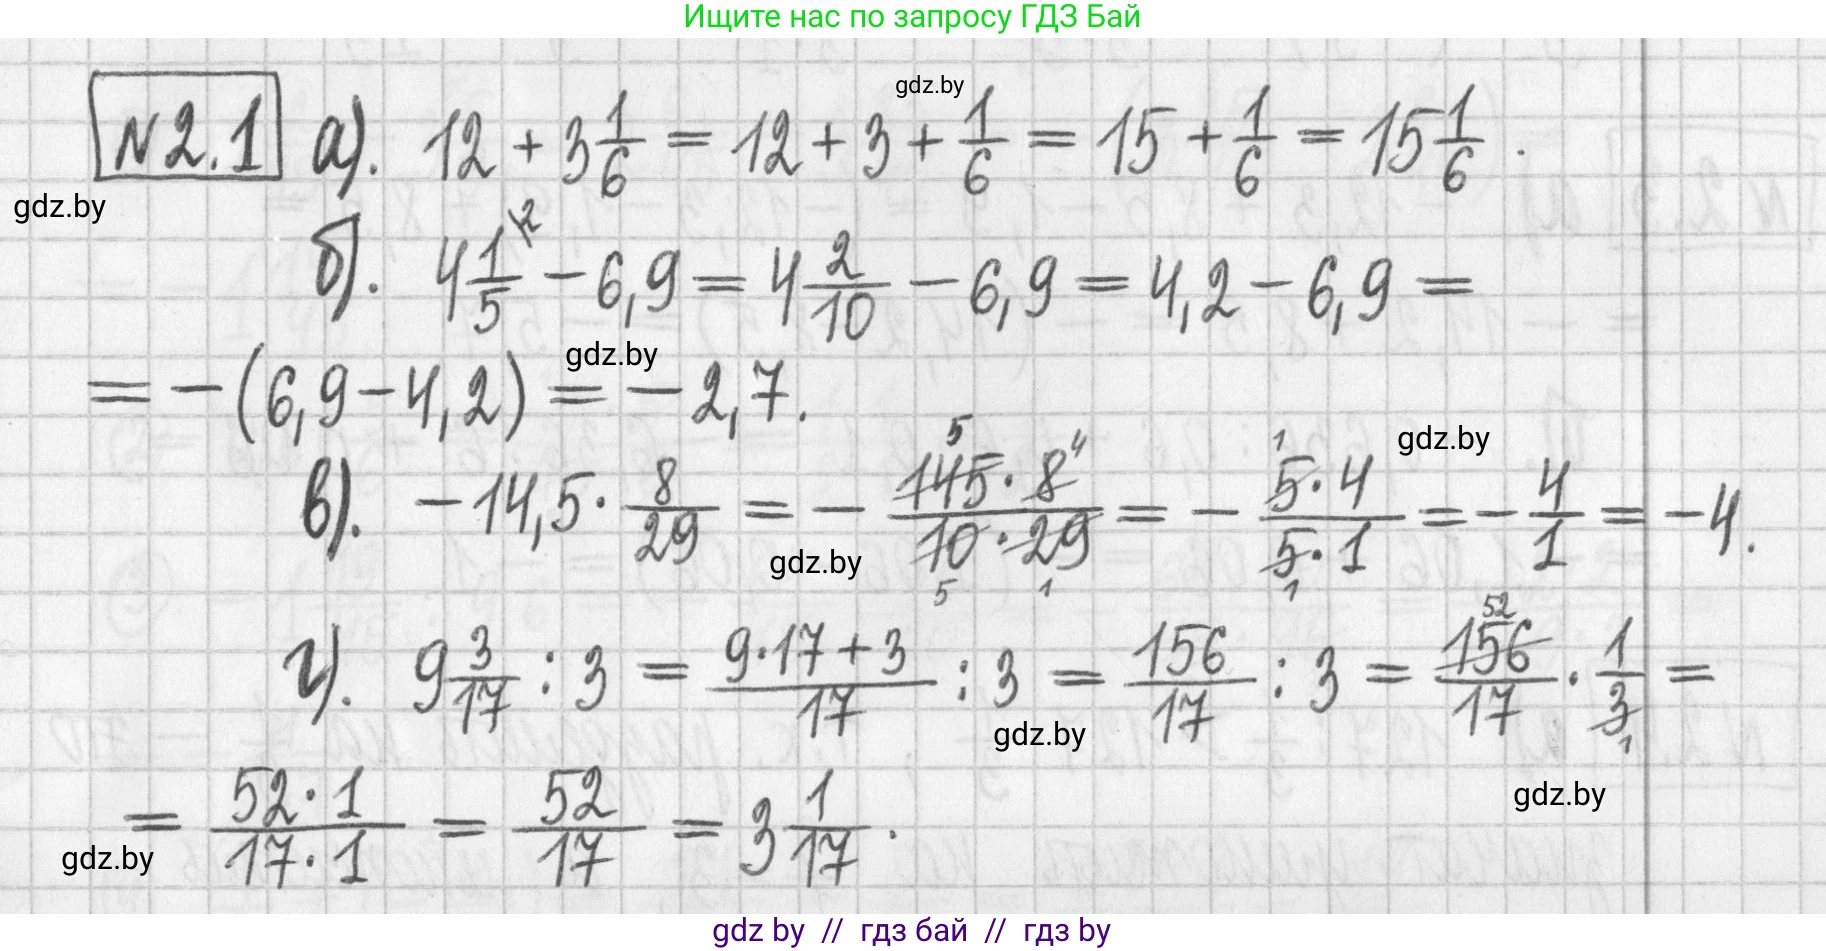 Ищите нас по запросу ГДЗ Бай
gdz.by
№2.1 а). 12 + 3 1/6 = 12 + 3 + 1/6 = 15 + 1/6 = 15 1/6 .
gdz.by
б). 4 1/5 \2 - 6,9 = 4 2/10 - 6,9 = 4,2 - 6,9 =
gdz.by
= - (6,9 - 4,2) = - 2,7.
gdz.by
в). - 14,5 · 8/29 = - (145 · 8)/(10 · 29) 5 4 5 1 = - (5 · 4)/(5 · 1) 1 1 = - 4/1 = - 4.
gdz.by
г). 9 3/17 : 3 = (9·17 + 3)/17 : 3 = 156/17 : 3 = 156/17 · 1/3 52 1 =
gdz.by
gdz.by
= (52 · 1)/(17 · 1) = 52/17 = 3 1/17 .
gdz.by
gdz by // гдз бай // гдз by